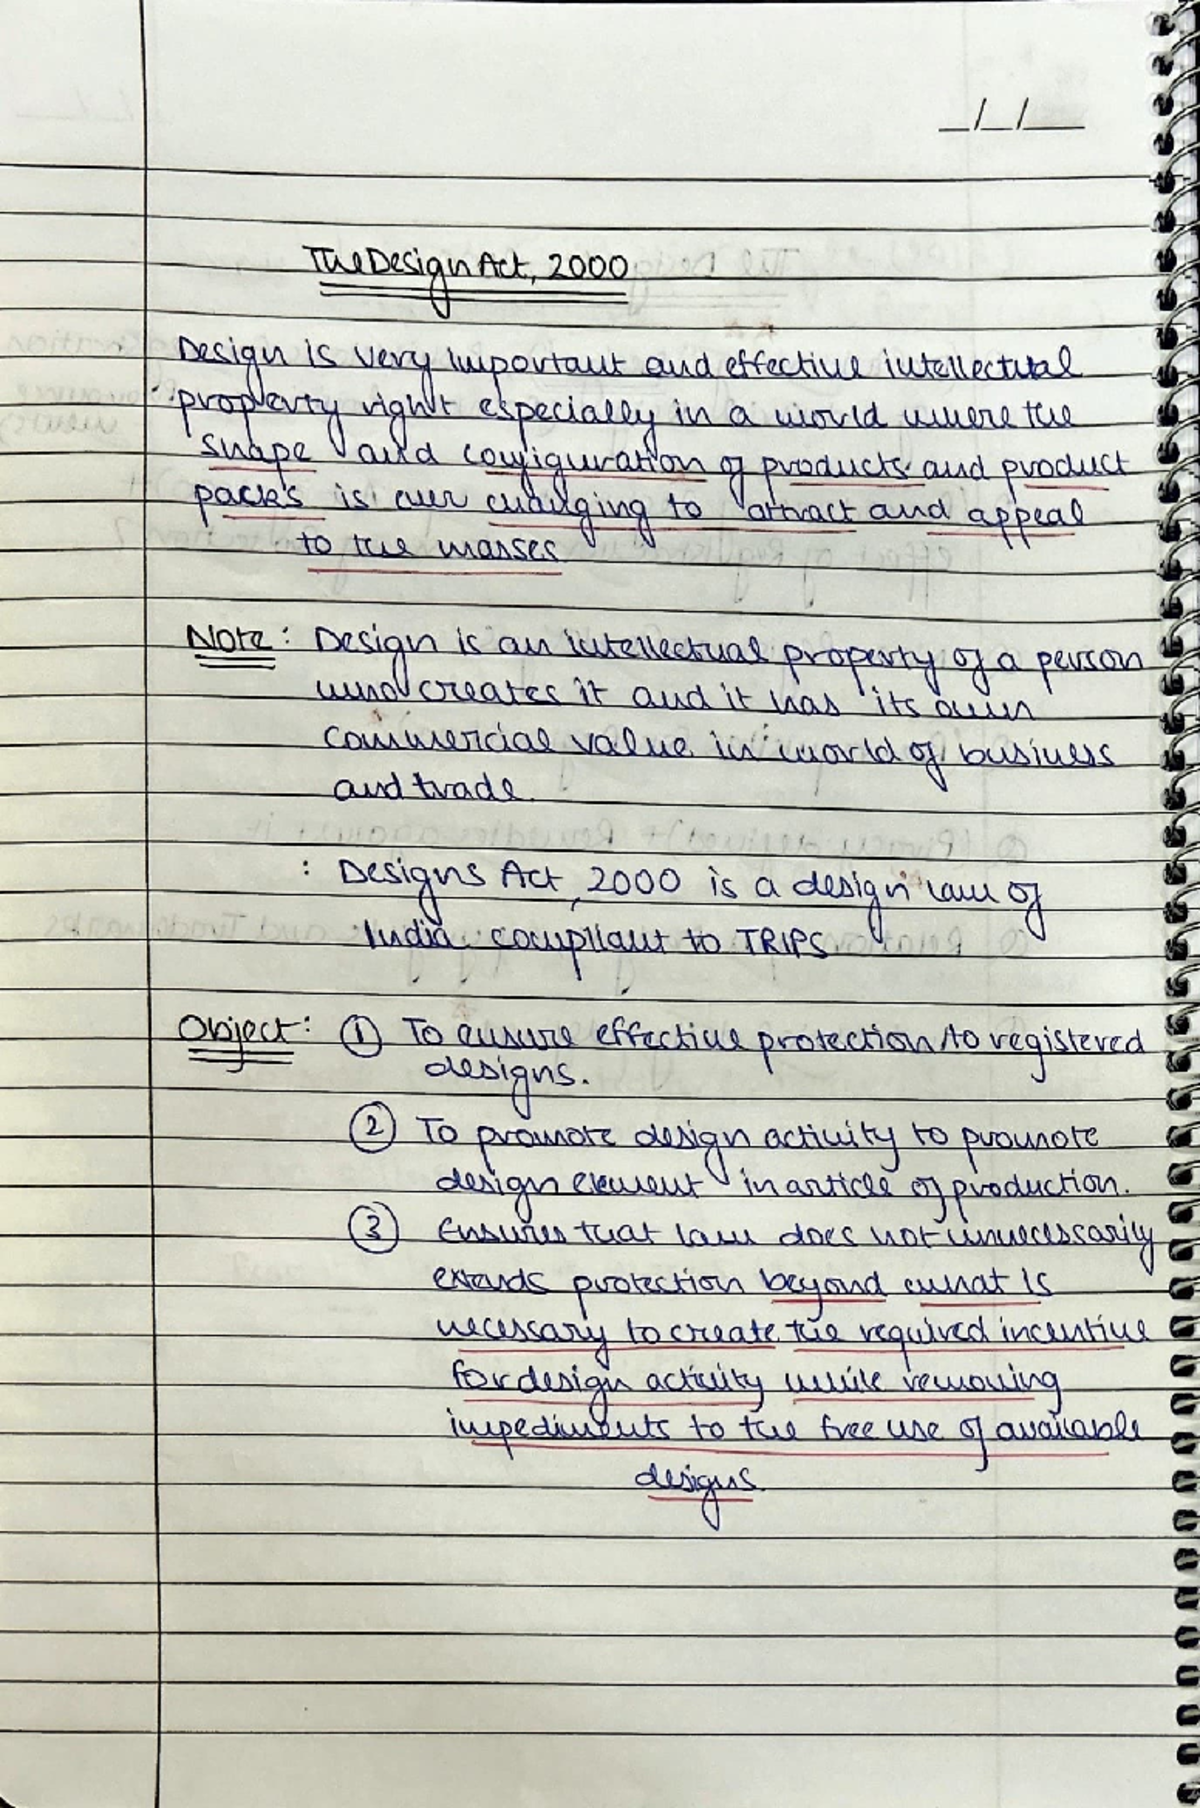 _/_/__
The Design Act, 2000
Design is very important and effective intellectual
property right especially in a world where the
shape and configuration of products and product
packs is ever changing to attract and appeal
to the masses
Note: Design is an intellectual property of a person
who creates it and it has its own
commercial value in world of business
and trade.
: Designs Act, 2000 is a design law of
India, compliant to TRIPS
Object: ① To ensure effective protection to registered
designs.
② To promote design activity to promote
design element in article of production.
③ Ensures that law does not unnecessarily
extends protection beyond what is
necessary to create the required incentive
for design activity while removing
impediments to the free use of available
designs.